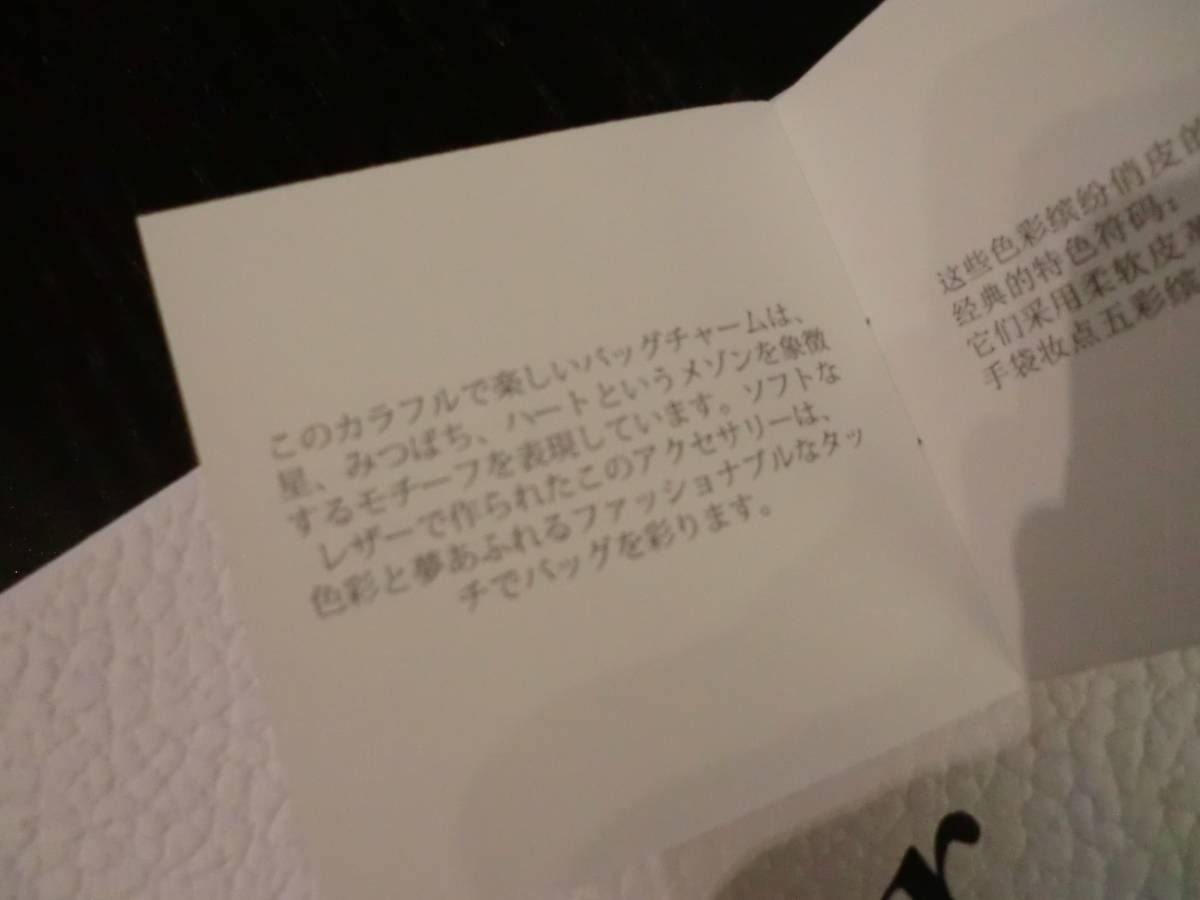 このカラフルで楽しいバッグチャームは、
星、みつばち、ハートというメゾンを象徴
するモチーフを表現しています。ソフトな
レザーで作られたこのアクセサリーは、
色彩と夢あふれるファッショナブルなタッ
チでバッグを彩ります。
这些色彩缤纷俏皮的
经典的特色符码：
它们采用柔软皮革
手袋妆点五彩缤